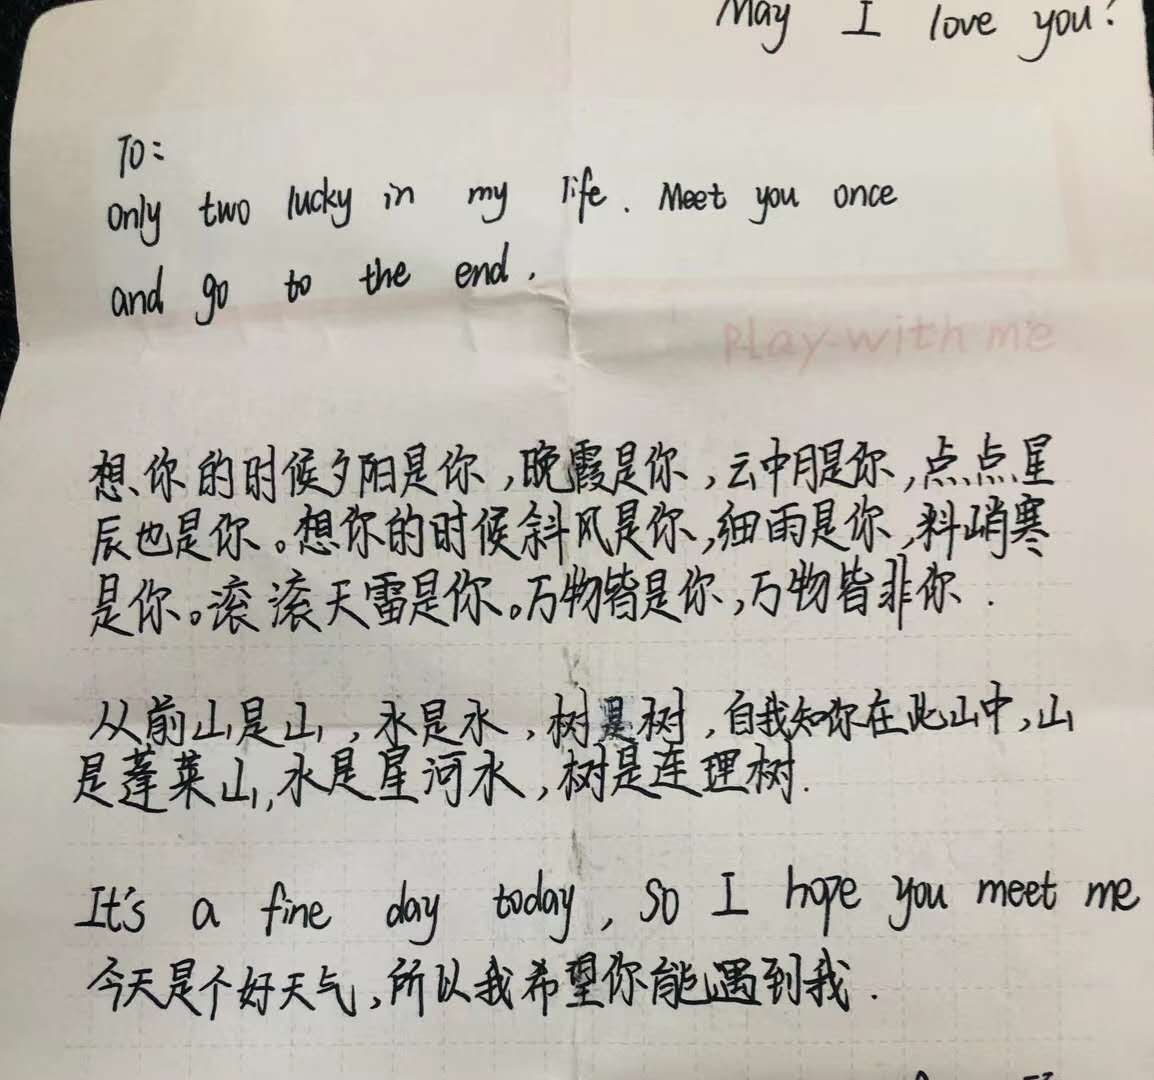 May I love you?
To:
only two lucky in my life. Meet you once
and go to the end.
Play with me
想你的时候夕阳是你,晚霞是你,云中月是你,点点星
辰也是你。想你的时候斜风是你,细雨是你,料峭寒
是你。滚滚天雷是你。万物皆是你,万物皆非你.
从前山是山,水是水,树是树,自我知你在此山中,山
是蓬莱山,水是星河水,树是连理树.
It's a fine day today, so I hope you meet me
今天是个好天气,所以我希望你能遇到我.